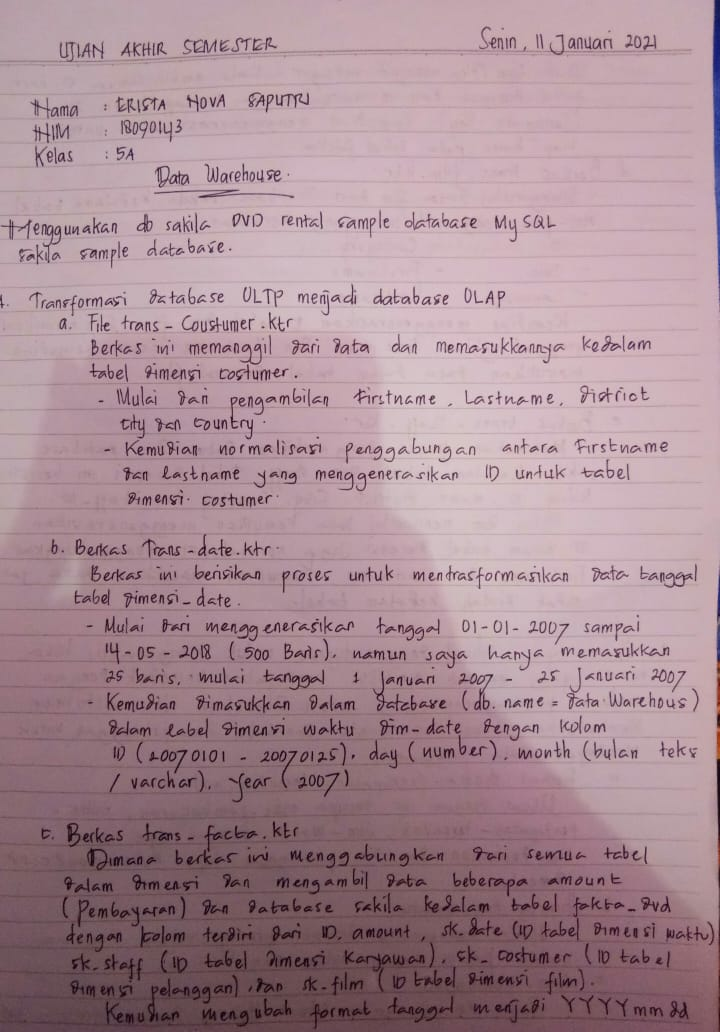 UJIAN AKHIR SEMESTER Senin, 11 Januari 2021
Nama : ERISTA NOVA SAPUTRI
NIM : 18090143
Kelas : 5A
Data Warehouse.
Menggunakan db sakila DVD rental sample database MySQL
sakila sample database.
1. Transformasi database OLTP menjadi database OLAP
a. File trans - Coustumer.ktr
Berkas ini memanggil dari data dan memasukkannya kedalam
tabel dimensi costumer.
- Mulai dari pengambilan Firstname, Lastname, district
city dan country.
- Kemudian normalisasi penggabungan antara Firstname
dan lastname yang menggenerasikan ID untuk tabel
dimensi. costumer.
b. Berkas Trans - date.ktr.
Berkas ini berisikan proses untuk mentrasformasikan data tanggal
tabel dimensi_date.
- Mulai dari menggenerasikan tanggal 01-01-2007 sampai
14-05-2018 (500 Baris), namun saya hanya memasukkan
25 baris, mulai tanggal 1 Januari 2007 - 25 Januari 2007
- Kemudian dimasukkan dalam database (db. name = data.Warehous)
dalam label dimensi waktu dim-date dengan kolom
ID (20070101 - 20070125), day (number), month (bulan teks
/ varchar), year (2007)
c. Berkas trans - facta.ktr
Dimana berkas ini menggabungkan dari semua tabel
dalam dimensi dan mengambil data beberapa amount
(Pembayaran) dan database sakila kedalam tabel fakta_dvd
dengan kolom terdiri dari ID, amount, sk.date (ID tabel dimensi waktu)
sk.staff (ID tabel dimensi Karyawan), sk_costumer (ID tabel
dimensi pelanggan), dan sk-film (ID tabel dimensi film).
Kemudian mengubah format tanggal menjadi YYYYmmdd